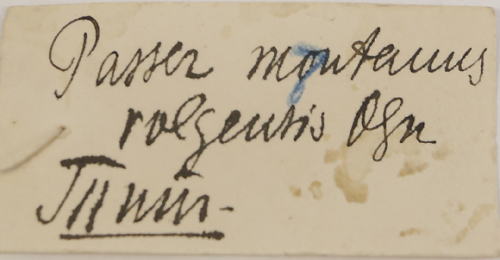 Passer montanus
volgensis Ogn
Тип